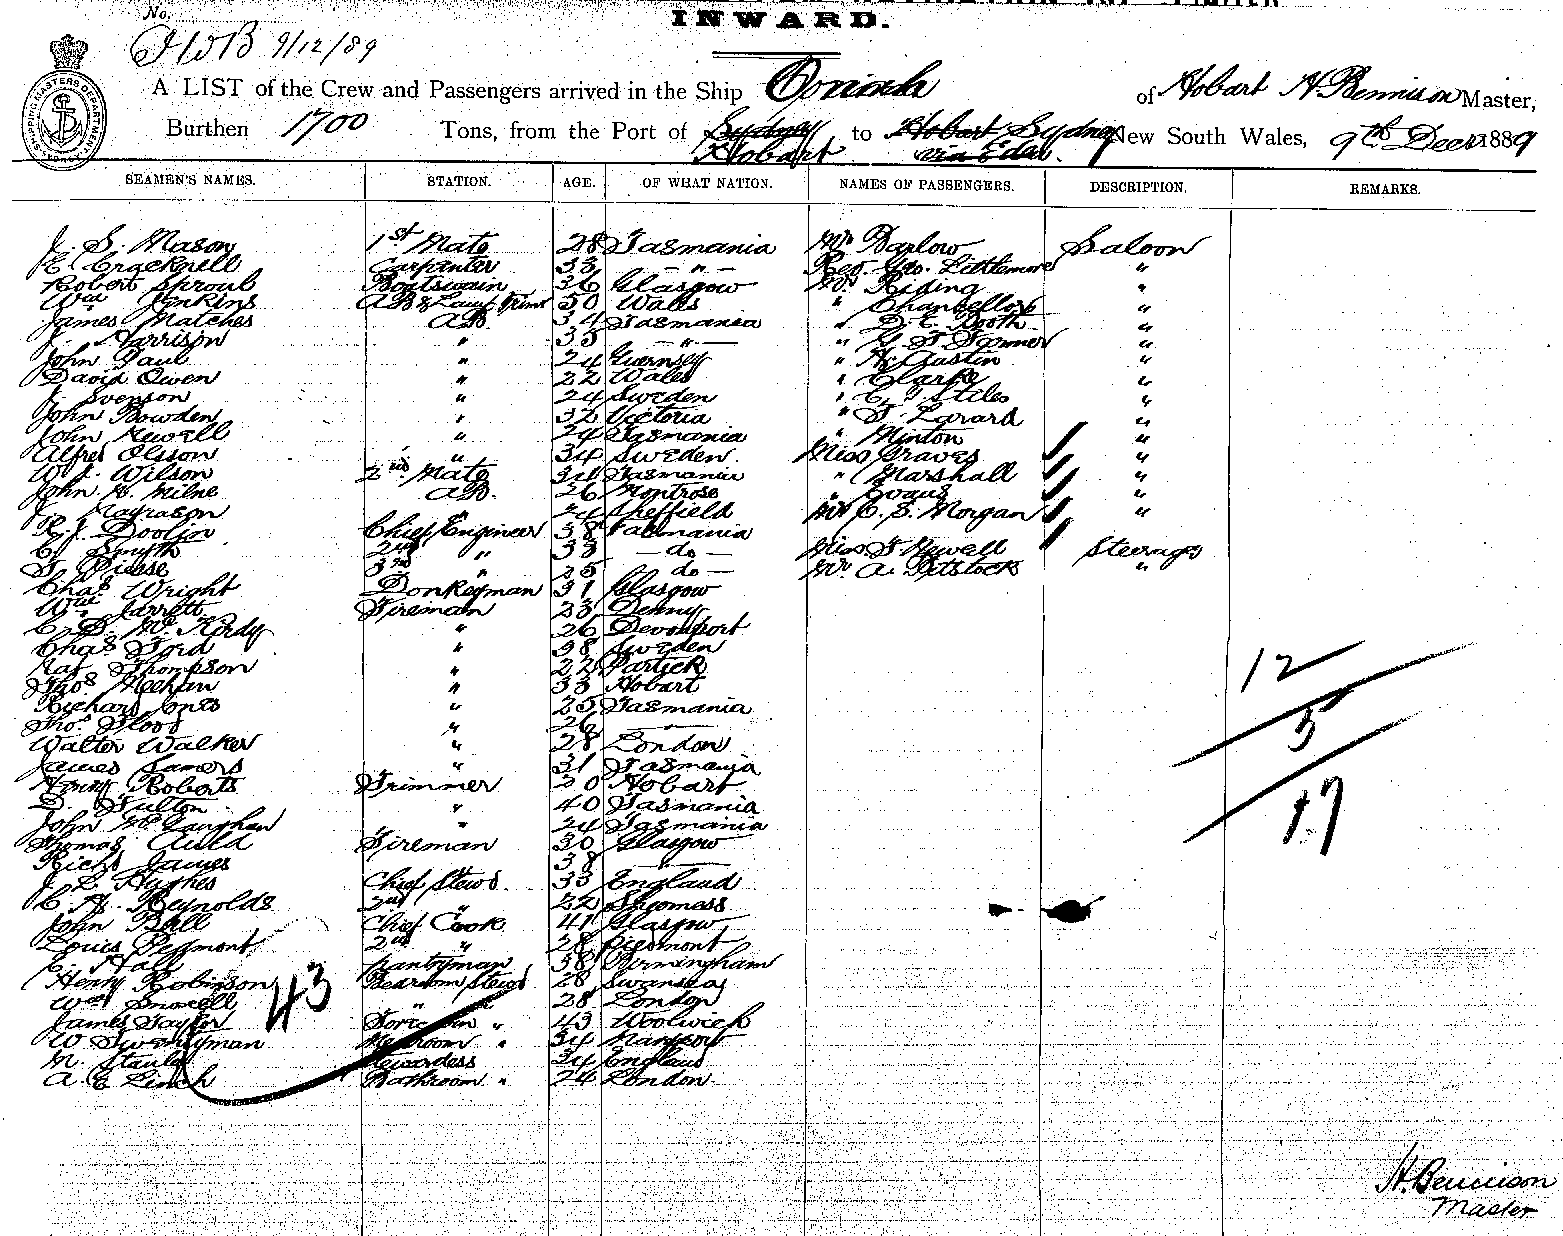 INWARD.
No.
9/12/89
A LIST of the Crew and Passengers arrived in the Ship Oonah of Hobart H Bennison Master,
Burthen 1700 Tons, from the Port of Sydney to Hobart Sydney New South Wales, 9th Decr 1889
Hobart via Eden.
SEAMEN'S NAMES. STATION. AGE. OF WHAT NATION. NAMES OF PASSENGERS. DESCRIPTION. REMARKS.
J. S. Mason 1st Mate 28 Tasmania Mr Barlow Saloon
E. Cracknell Carpenter 33 — " — Rev. Geo. Littlemore "
Robert Sproul Boatswain 36 Glasgow Mr Riding "
Wm Jenkins AB & Lamp Trimr 50 Wales " Chancellor "
James Matches AB. 34 Tasmania " D. C. Booth "
J. Harrison " 33 — " — "
John Paul " 24 Guernsey " H. Austin "
David Owen " 22 Wales " Clarke "
J. Svenson " 24 Sweden " Stiles "
John Bowden " 32 Victoria " T. Larard "
John Newell " 24 Tasmania " Minton "
Alfred Olsson " 34 Sweden. Miss Graves "
W. J. Wilson 2nd Mate 34 Tasmania " Marshall "
John Milne AB. 26 Montrose " Evans "
" 24 Sheffield Mr C. S. Morgan "
Chief Engineer 38 Tasmania
C. Smyth 2nd " 33 — do — Miss T. Newell Steerage
T. Piesse 3rd " 25 do — Mr A. Pitstock "
Chas Wright Donkeyman 31 Glasgow
Wm Jarrett Fireman 23 Denny
" 26 Devonport
Chas Ford " 38 Sweden
Thompson " 22 Partick
Thos Meehan " 33 Hobart
Richard Jones " 25 Tasmania
Thos. Flood " 26 — " —
Walter Walker " 28 London
James Lamers " 31 Tasmania
Henry Roberts Trimmer 20 Hobart
D. Fulton " 40 Tasmania
John " 24 Tasmania
Thomas Auld Fireman 30 Glasgow
Richd James 38 — " —
J. L. Hughes Chief Stewd. 33 England
C. H. Reynolds 2nd " 22 Sheerness
John Ball Chief Cook 41 Glasgow
Louis 2nd " 28 Piedmont
C. Hall Pantryman 38 Birmingham
Henry Robinson Bedroom Stewd 28 Swansea
Wm " 28 London
James Taylor " 43 Woolwich
W " 34
M. Stanley Stewardess 34 England
A. E. Linch Bathroom " 24 London
43
12
5
17
H. Bennison
Master